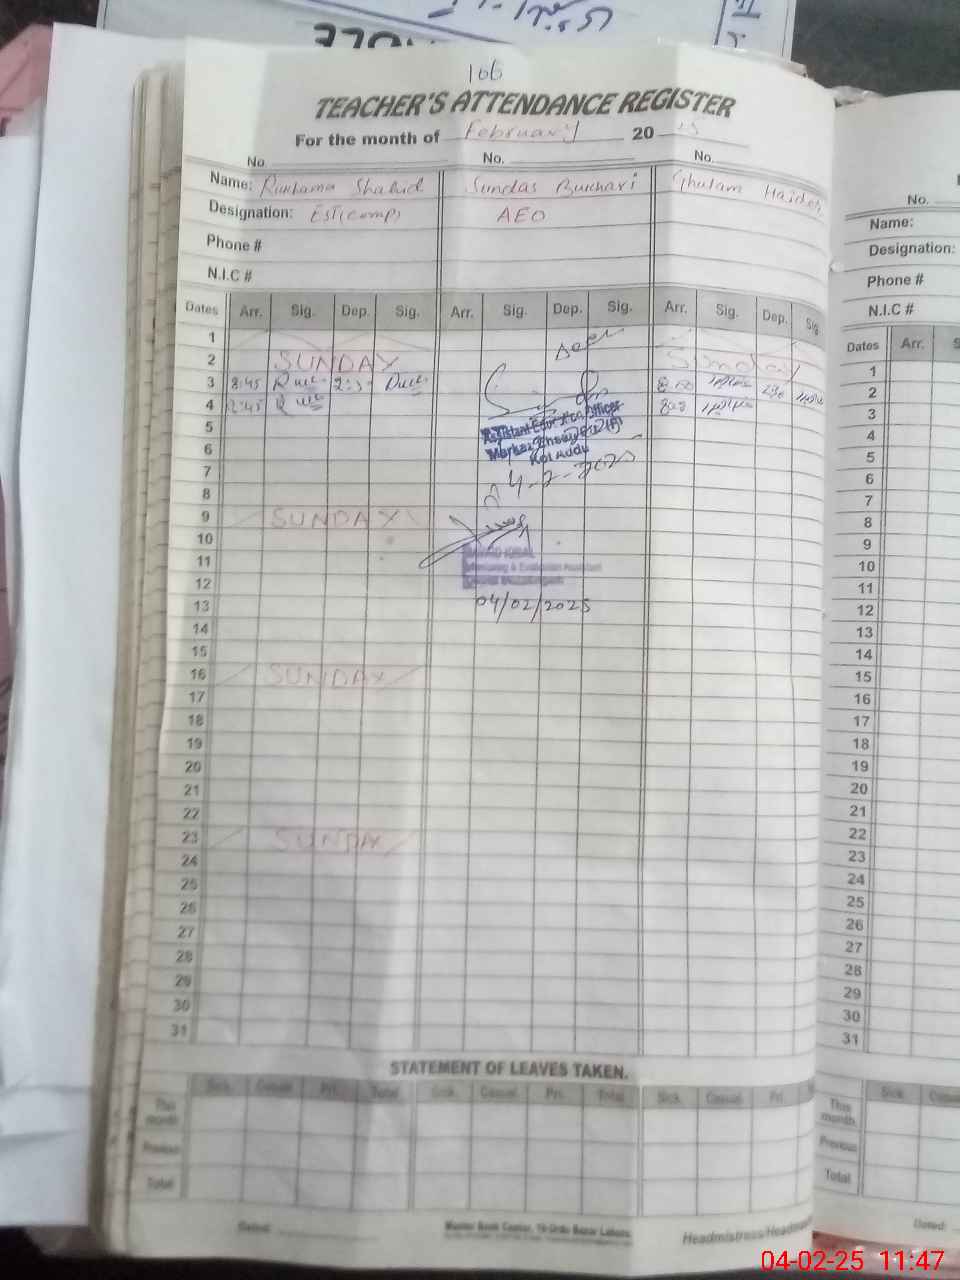 166
TEACHER'S ATTENDANCE REGISTER
For the month of February 20 25
No. No. No.
Name: Rukhama Shahid Sundas Bukhari Ghulam Haider
Designation: EST(Comp) AEO
Phone #
N.I.C #
Dates Arr. Sig. Dep. Sig. Arr. Sig. Dep. Sig. Arr. Sig. Dep. Sig
1
2 SUNDAY Sunday
3 8:45
4 8:45
5
6
7
8
9 SUNDAY
10
11
12
13
14
15
16 SUNDAY
17
18
19
20
21
22
23 SUNDAY
24
25
26
27
28
29
30
31
Seen
Assistant Education Officer
Markaz
Kot Addu
4-2-2025
Monitoring & Evaluation Assistant
04/02/2025
STATEMENT OF LEAVES TAKEN.
Sick. Casual Pri. Total Sick. Casual. Pri. Total Sick. Casual Pri.
This month
Previous
Total
Dated:
Master Book Center, 19-Urdu Bazar Lahore.
Headmistress/Headmas
No.
Name:
Designation:
Phone #
N.I.C #
Dates Arr. S
1
2
3
4
5
6
7
8
9
10
11
12
13
14
15
16
17
18
19
20
21
22
23
24
25
26
27
28
29
30
31
Sick
This month
Previous
Total
Dated:
04-02-25 11:47